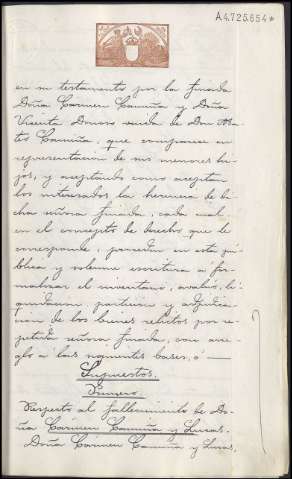 A4.725.654*
en su testamento por la finada
Doña Carmen Camiña y Doña
Vicenta Donoso viuda de Don Ma-
teo Camiña, que comparece en
representacion de sus menores hi-
jos, y aceptando como aceptan
los interesados la herencia de di-
cha señora finada, cada cual
en el concepto de derecho que le
corresponde, proceden en esta pú-
blica y solemne escritura a for-
malizar el inventario, avaluo, li-
quidacion particion y adjudica-
cion de los bienes relictos por re-
petida señora finada, con arre-
glo a las siguientes bases, o
Supuestos.
Primero.
Respecto al fallecimiento de Do-
ña Carmen Camiña y Lucas.
Doña Carmen Camiña y Lucas,